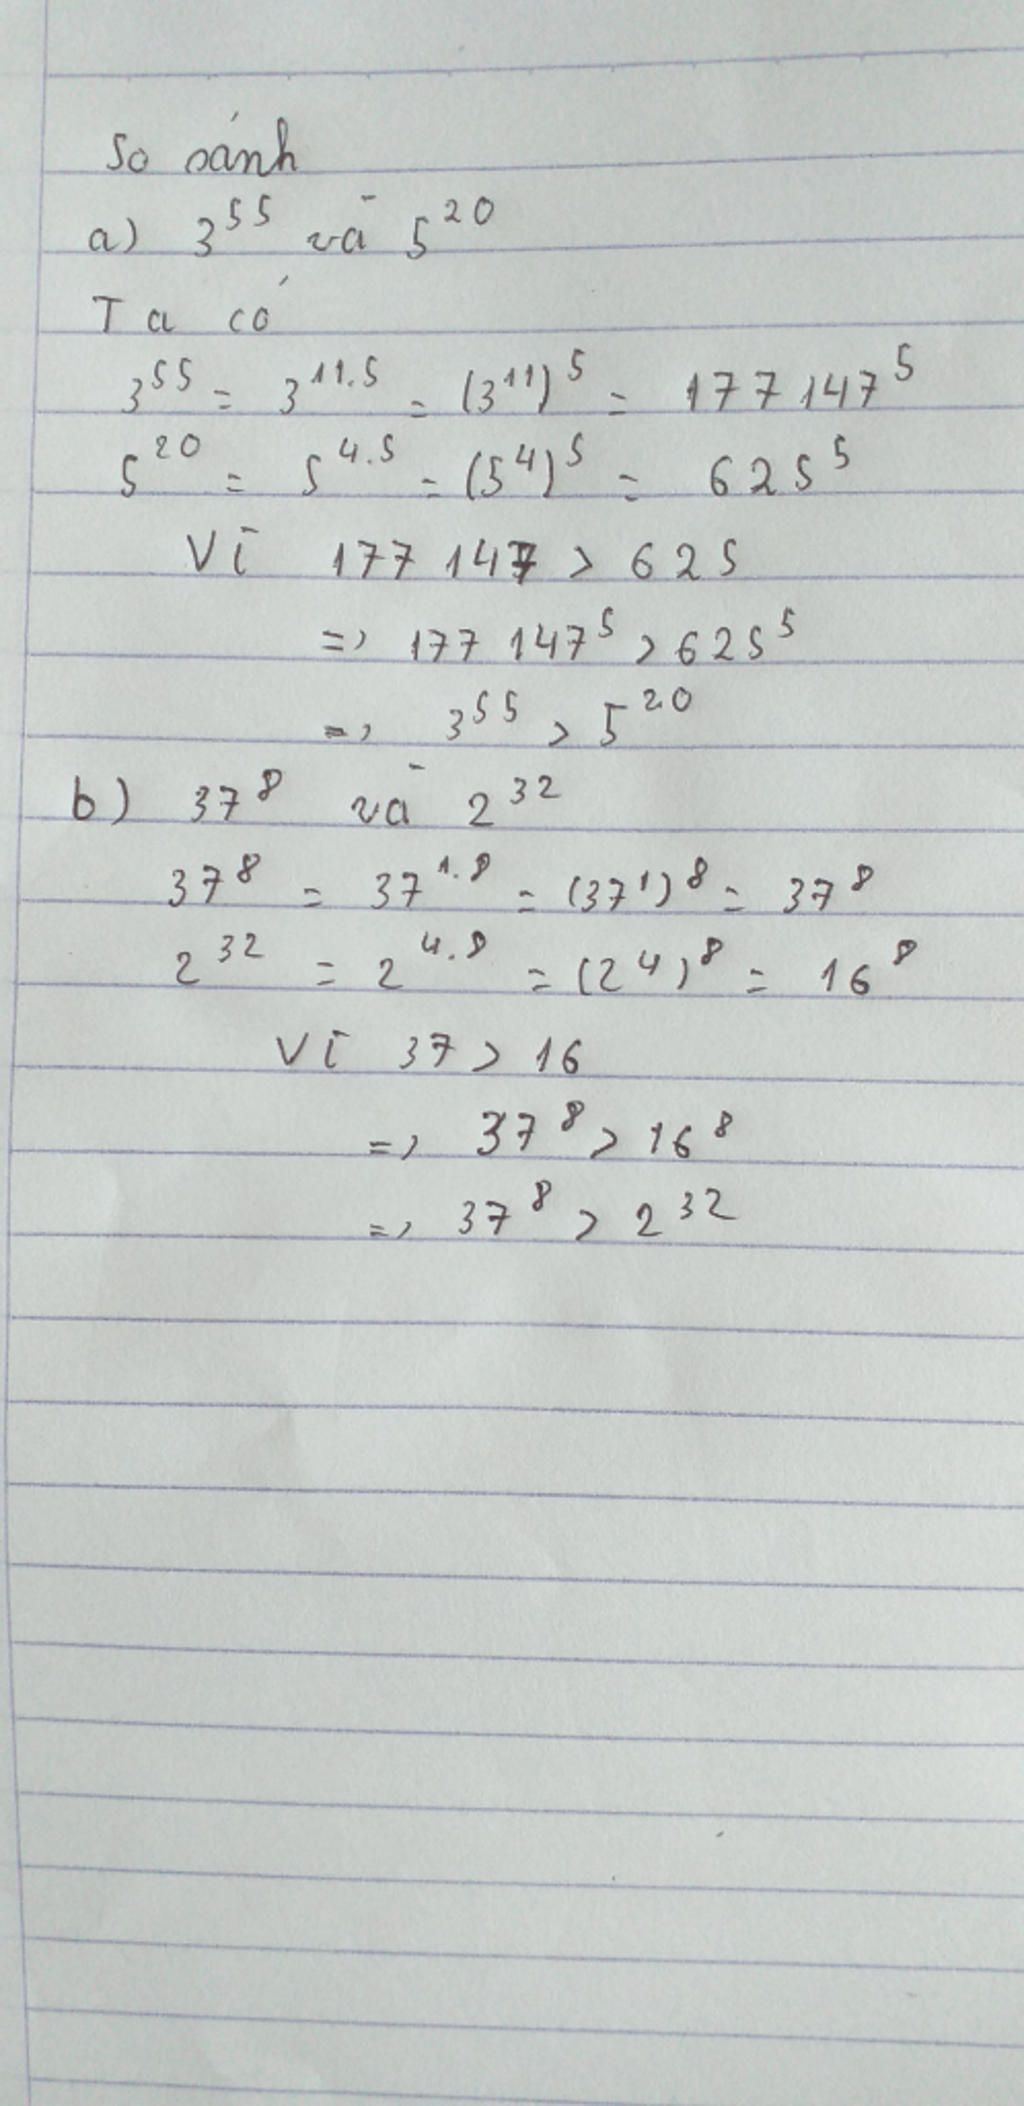 So sánh
a) 3^55 và 5^20
Ta có
3^55 = 3^11.5 = (3^11)^5 = 177 147^5
5^20 = 5^4.5 = (5^4)^5 = 625^5
Vì 177 147 > 625
=> 177 147^5 > 625^5
=> 3^55 > 5^20
b) 37^8 và 2^32
37^8 = 37^1.8 = (37^1)^8 = 37^8
2^32 = 2^4.8 = (2^4)^8 = 16^8
Vì 37 > 16
=> 37^8 > 16^8
=> 37^8 > 2^32